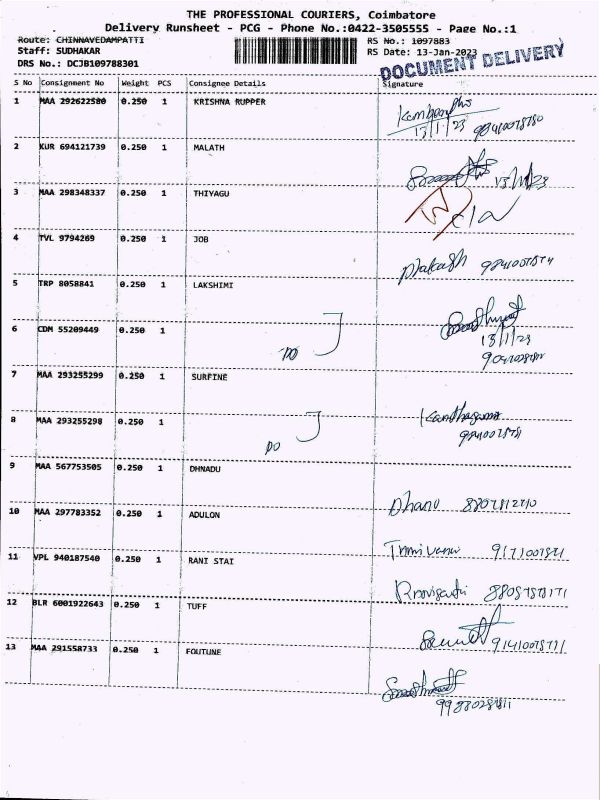 THE PROFESSIONAL COURIERS, Coimbatore
Delivery Runsheet - PCG - Phone No.:0422-3505555 - Page No.:1
Route: CHINNAVEDAMPATTI
RS No.: 1097883
Staff: SUDHAKAR
RS Date: 13-Jan-2023
DRS No.: DCJB109788301
DOCUMENT DELIVERY
S No Consignment No Weight PCS Consignee Details Signature
1 MAA 292622580 0.250 1 KRISHNA RUPPER
13/1/23
2 KUR 694121739 0.250 1 MALATH
3 MAA 298348337 0.250 1 THIYAGU
4 TVL 9794269 0.250 1 JOB
5 TRP 8058841 0.250 1 LAKSHIMI
6 CDM 55209449 0.250 1 DO
13/1/23
7 MAA 293255299 0.250 1 SURFINE
8 MAA 293255298 0.250 1 DO
9 MAA 567753505 0.250 1 DHNADU
Dhanu
10 MAA 297783352 0.250 1 ADULON
11 VPL 940187540 0.250 1 RANI STAI
12 BLR 6001922643 0.250 1 TUFF
13 MAA 291558733 0.250 1 FOUTUNE